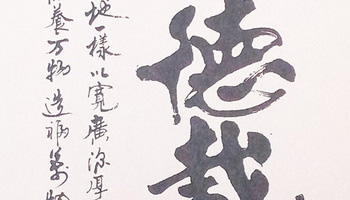 德載
地一樣以寬廣深厚
養万物 造福萬物